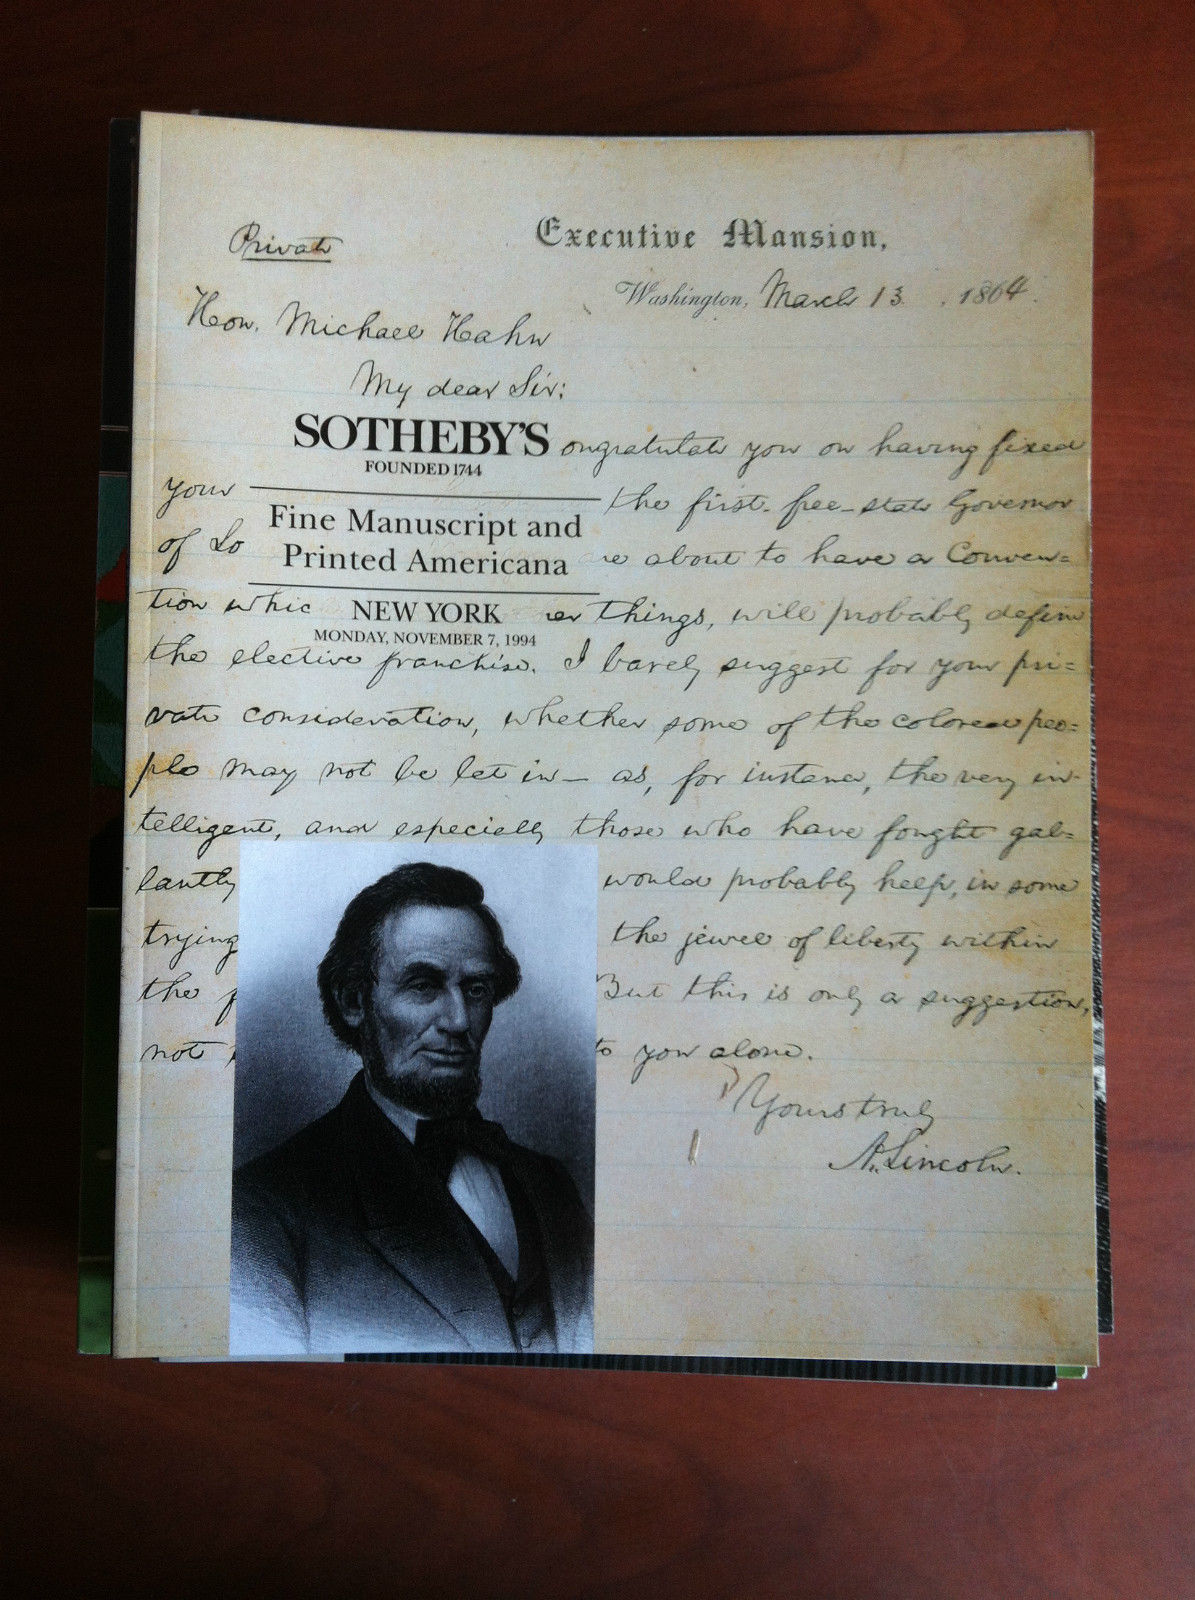 Private
Executive Mansion,
Washington, March 13, 1864.
Hon. Michael Hahn
My dear Sir:
SOTHEBY'S
FOUNDED 1744
ongratulate you on having fixed
your
the first-free-state Governor
Fine Manuscript and
Printed Americana
of Lo
re about to have a Conven=
tion whic
NEW YORK
her things, will probably define
MONDAY, NOVEMBER 7, 1994
the elective franchise. I barely suggest for your pri=
vate consideration, whether some of the colored peo=
ple may not be let in— as, for instance, the very in-
telligent, and especially those who have fought gal=
lantly
would probably help, in some
trying
the jewel of liberty within
the f
But this is only a suggestion,
not
to you alone.
Yours truly
A. Lincoln.